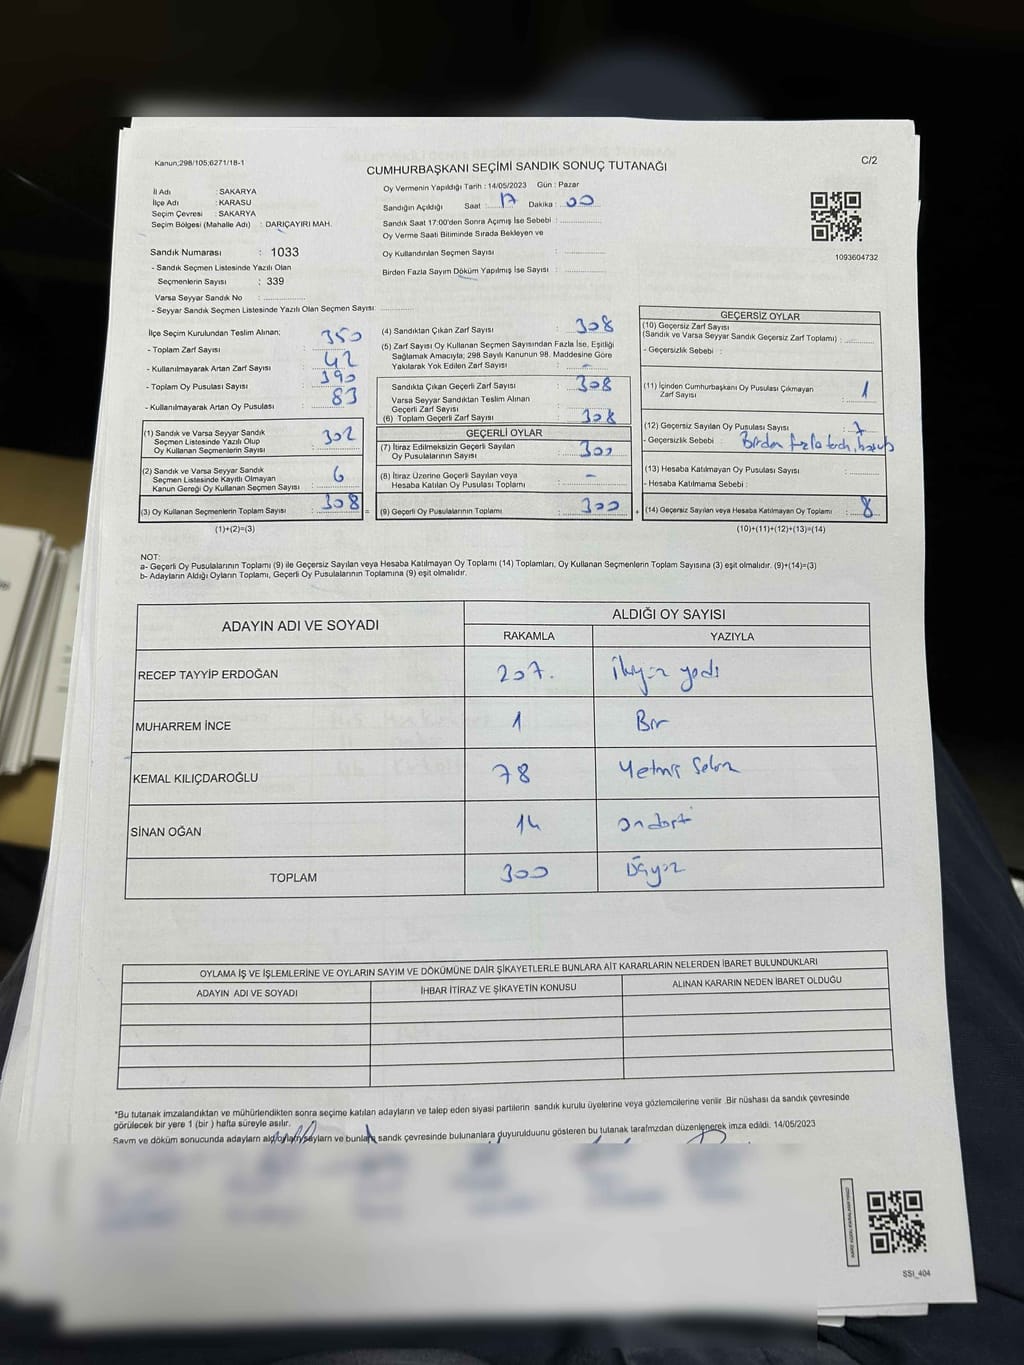 Kanun;298/105;6271/18-1
CUMHURBAŞKANI SEÇİMİ SANDIK SONUÇ TUTANAĞI
C/2
İl Adı : SAKARYA
İlçe Adı : KARASU
Seçim Çevresi : SAKARYA
Seçim Bölgesi (Mahalle Adı) : DARIÇAYIRI MAH.
Sandık Numarası : 1033
- Sandık Seçmen Listesinde Yazılı Olan
Seçmenlerin Sayısı : 339
Varsa Seyyar Sandık No :
- Seyyar Sandık Seçmen Listesinde Yazılı Olan Seçmen Sayısı:
Oy Vermenin Yapıldığı Tarih : 14/05/2023 Gün : Pazar
Sandığın Açıldığı Saat : 17 Dakika : 00
Sandık Saat 17:00'den Sonra Açımış İse Sebebi :
Oy Verme Saati Bitiminde Sırada Bekleyen ve
Oy Kullandırılan Seçmen Sayısı :
Birden Fazla Sayım Döküm Yapılmış İse Sayısı :
1093604732
İlçe Seçim Kurulundan Teslim Alınan;
- Toplam Zarf Sayısı : 350
- Kullanılmayarak Artan Zarf Sayısı : 42
- Toplam Oy Pusulası Sayısı : 390
- Kullanılmayarak Artan Oy Pusulası : 83
(1) Sandık ve Varsa Seyyar Sandık
Seçmen Listesinde Yazılı Olup
Oy Kullanan Seçmenlerin Sayısı : 302
(2) Sandık ve Varsa Seyyar Sandık
Seçmen Listesinde Kayıtlı Olmayan
Kanun Gereği Oy Kullanan Seçmen Sayısı : 6
(3) Oy Kullanan Seçmenlerin Toplam Sayısı : 308 =
(1)+(2)=(3)
(4) Sandıktan Çıkan Zarf Sayısı : 308
(5) Zarf Sayısı Oy Kullanan Seçmen Sayısından Fazla İse, Eşitliği
Sağlamak Amacıyla; 298 Sayılı Kanunun 98. Maddesine Göre
Yakılarak Yok Edilen Zarf Sayısı : -
Sandıkta Çıkan Geçerli Zarf Sayısı : 308
Varsa Seyyar Sandıktan Teslim Alınan
Geçerli Zarf Sayısı :
(6) Toplam Geçerli Zarf Sayısı : 308
GEÇERLİ OYLAR
(7) İtiraz Edilmeksizin Geçerli Sayılan
Oy Pusulalarının Sayısı : 300
(8) İtiraz Üzerine Geçerli Sayılan veya
Hesaba Katılan Oy Pusulası Toplamı : -
(9) Geçerli Oy Pusulalarının Toplamı : 300 +
GEÇERSİZ OYLAR
(10) Geçersiz Zarf Sayısı
(Sandık ve Varsa Seyyar Sandık Geçersiz Zarf Toplamı) :
- Geçersizlik Sebebi :
(11) İçinden Cumhurbaşkanı Oy Pusulası Çıkmayan
Zarf Sayısı : 1
(12) Geçersiz Sayılan Oy Pusulası Sayısı : 7
- Geçersizlik Sebebi : Birden fazla
(13) Hesaba Katılmayan Oy Pusulası Sayısı :
- Hesaba Katılmama Sebebi :
(14) Geçersiz Sayılan veya Hesaba Katılmayan Oy Toplamı : 8
(10)+(11)+(12)+(13)=(14)
NOT:
a- Geçerli Oy Pusulalarının Toplamı (9) ile Geçersiz Sayılan veya Hesaba Katılmayan Oy Toplamı (14) Toplamları, Oy Kullanan Seçmenlerin Toplam Sayısına (3) eşit olmalıdır. (9)+(14)=(3)
b- Adayların Aldığı Oyların Toplamı, Geçerli Oy Pusulalarının Toplamına (9) eşit olmalıdır.
ADAYIN ADI VE SOYADI
ALDIĞI OY SAYISI
RAKAMLA YAZIYLA
RECEP TAYYİP ERDOĞAN 207. İkiyüz yedi
MUHARREM İNCE 1 Bir
KEMAL KILIÇDAROĞLU 78 Yetmiş Sekiz
SİNAN OĞAN 14 ondört
TOPLAM 300 Üçyüz
OYLAMA İŞ VE İŞLEMLERİNE VE OYLARIN SAYIM VE DÖKÜMÜNE DAİR ŞİKAYETLERLE BUNLARA AİT KARARLARIN NELERDEN İBARET BULUNDUKLARI
ADAYIN ADI VE SOYADI İHBAR İTİRAZ VE ŞİKAYETİN KONUSU ALINAN KARARIN NEDEN İBARET OLDUĞU
*Bu tutanak imzalandıktan ve mühürlendikten sonra seçime katılan adayların ve talep eden siyasi partilerin sandık kurulu üyelerine veya gözlemcilerine verilir .Bir nüshası da sandık çevresinde
görülecek bir yere 1 (bir ) hafta süreyle asılır.
Sayım ve döküm sonucunda adayların aldığı oyların sayıların ve bunların sandık çevresinde bulunanlara duyurulduunu gösteren bu tutanak tarafmzdan düzenlenerek imza edildi. 14/05/2023
SSI_404